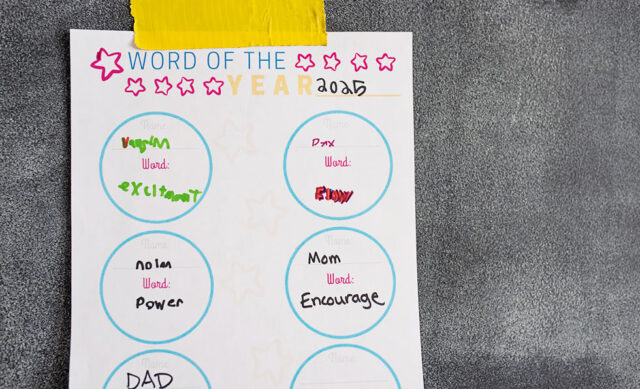 WORD OF THE
YEAR 2025
Name:
Word:
Name:
Word:
Flow
Name:
nolan
Word:
Power
Name:
Mom
Word:
Encourage
Name:
DAD
Name: